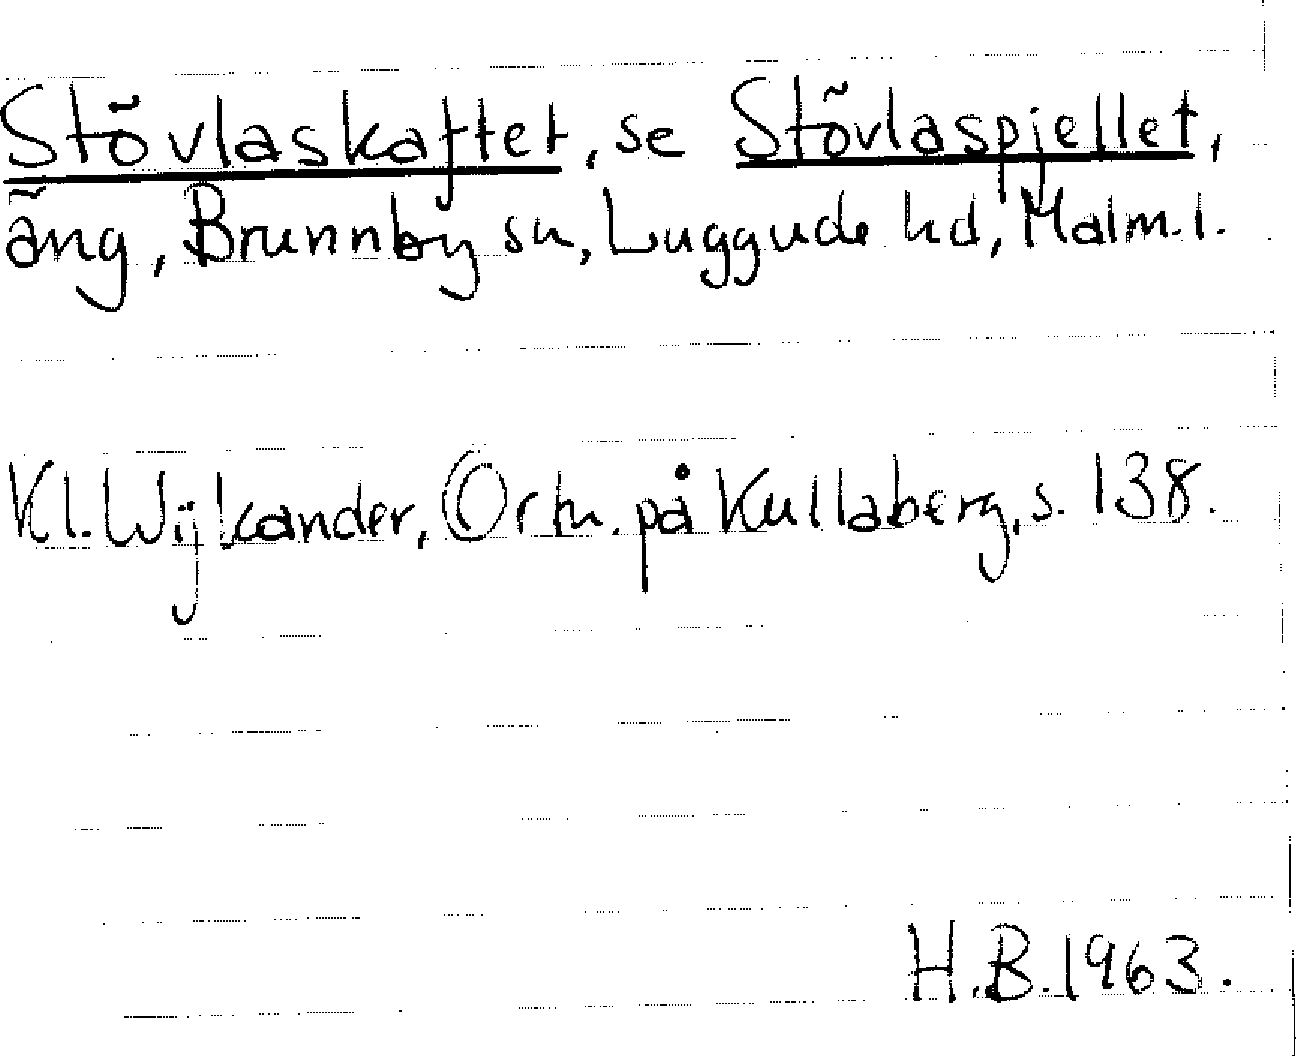 Stövlaskaftet, se Stövlaspjellet,
äng, Brunnby sn, Luggude hd, Malm.l.
Kl. Wijkander, Ortn. på Kullaberg, s. 138.
H.B. 1963.